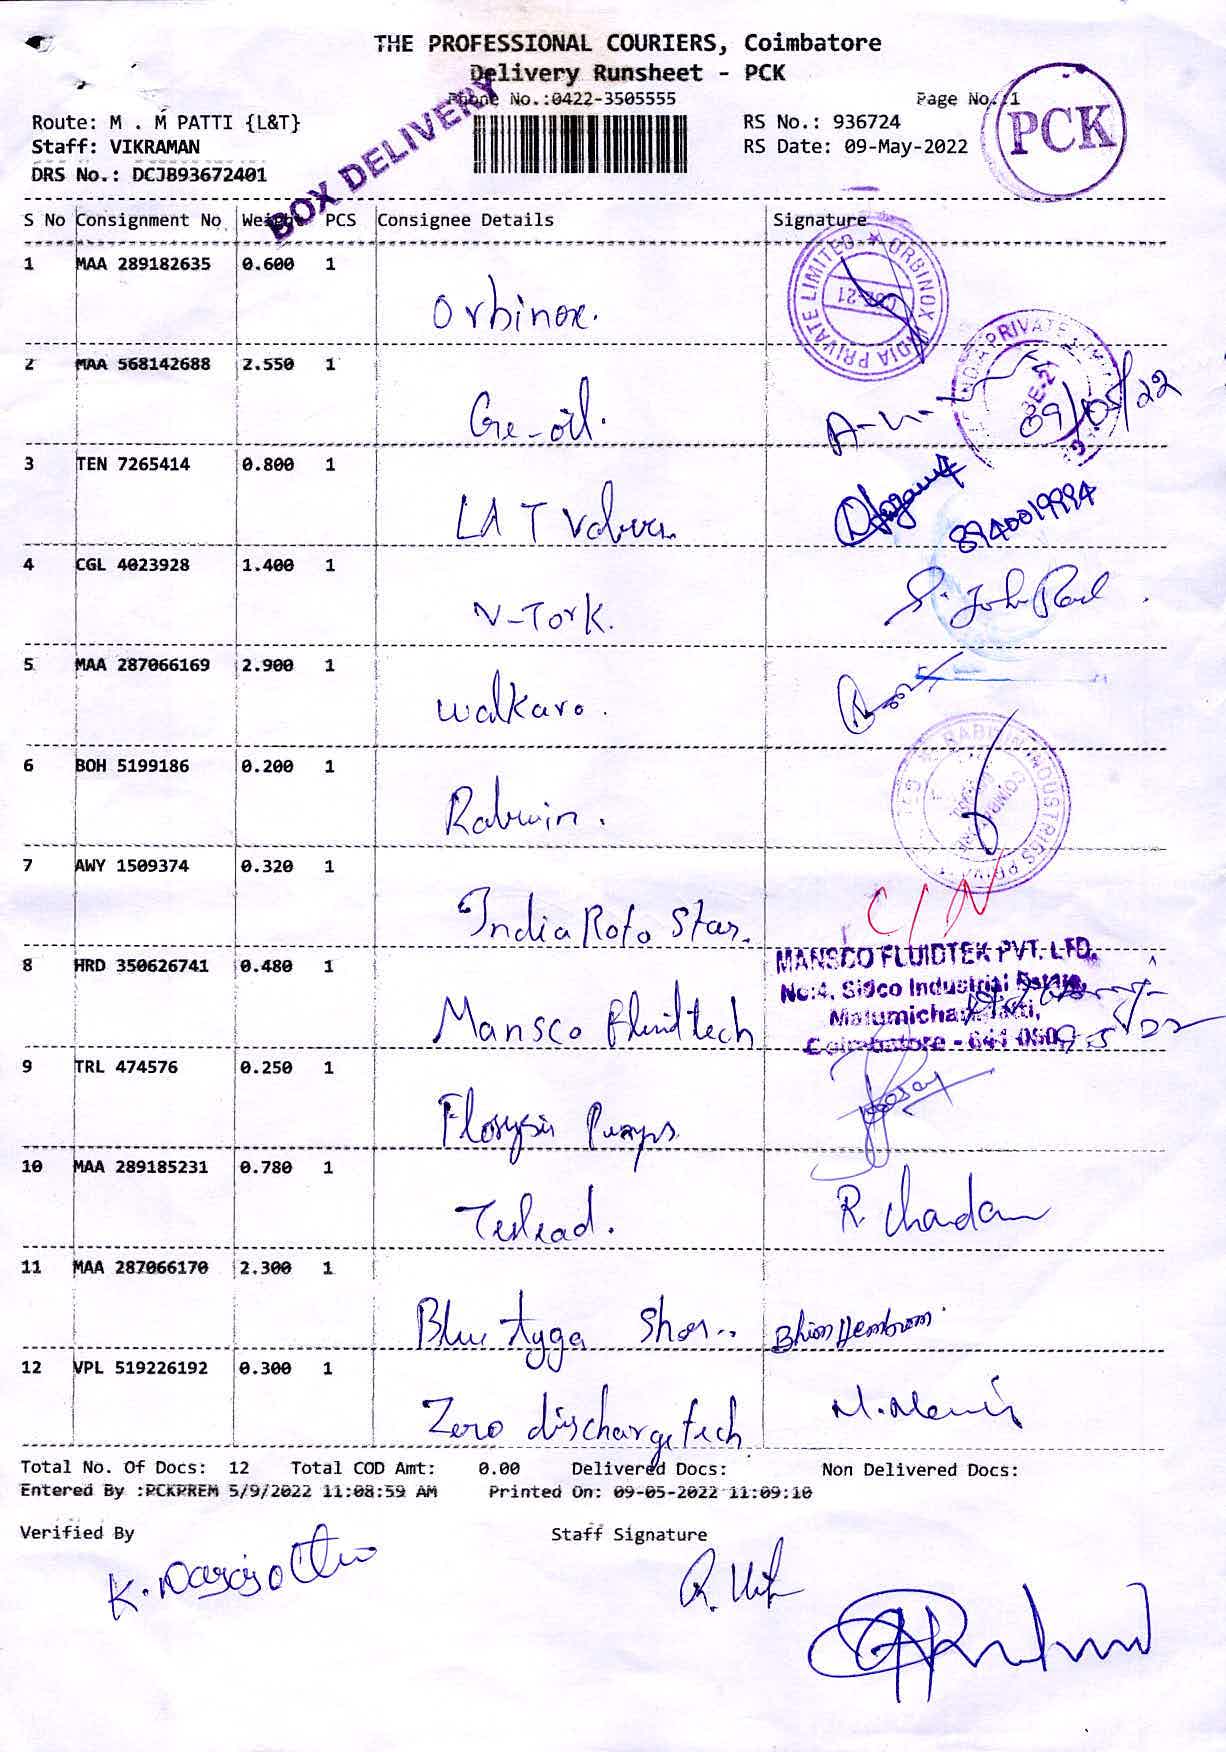 THE PROFESSIONAL COURIERS, Coimbatore
Delivery Runsheet - PCK
Phone No.:0422-3505555
Page No.:1
PCK
BOX DELIVERY
Route: M . M PATTI {L&T}
RS No.: 936724
Staff: VIKRAMAN
RS Date: 09-May-2022
DRS No.: DCJB93672401
S No Consignment No Weight PCS Consignee Details Signature
1 MAA 289182635 0.600 1
Orbinox.
ORBINOX INDIA PRIVATE LIMITED
2 MAA 568142688 2.550 1
Ge-oil.
09/05/22
3 TEN 7265414 0.800 1
L&T Valves
8940019994
4 CGL 4023928 1.400 1
V-Tork.
S. John Paul
5 MAA 287066169 2.900 1
walkaro.
6 BOH 5199186 0.200 1
Rabwin.
7 AWY 1509374 0.320 1
India Roto Star.
C/N
8 HRD 350626741 0.480 1
Mansco fluidtech
MANSCO FLUIDTEK PVT. LTD,
No:4, Sidco Industrial Estate,
Coimbatore - 641 050
9 TRL 474576 0.250 1
Flosysis Pumps
10 MAA 289185231 0.780 1
R. Chandan
11 MAA 287066170 2.300 1
Blue tyga Shoes..
Bhim Hembrom
12 VPL 519226192 0.300 1
Zero discharge tech
Total No. Of Docs: 12 Total COD Amt: 0.00 Delivered Docs: Non Delivered Docs:
Entered By :PCKPREM 5/9/2022 11:08:59 AM Printed On: 09-05-2022 11:09:10
Verified By
Staff Signature